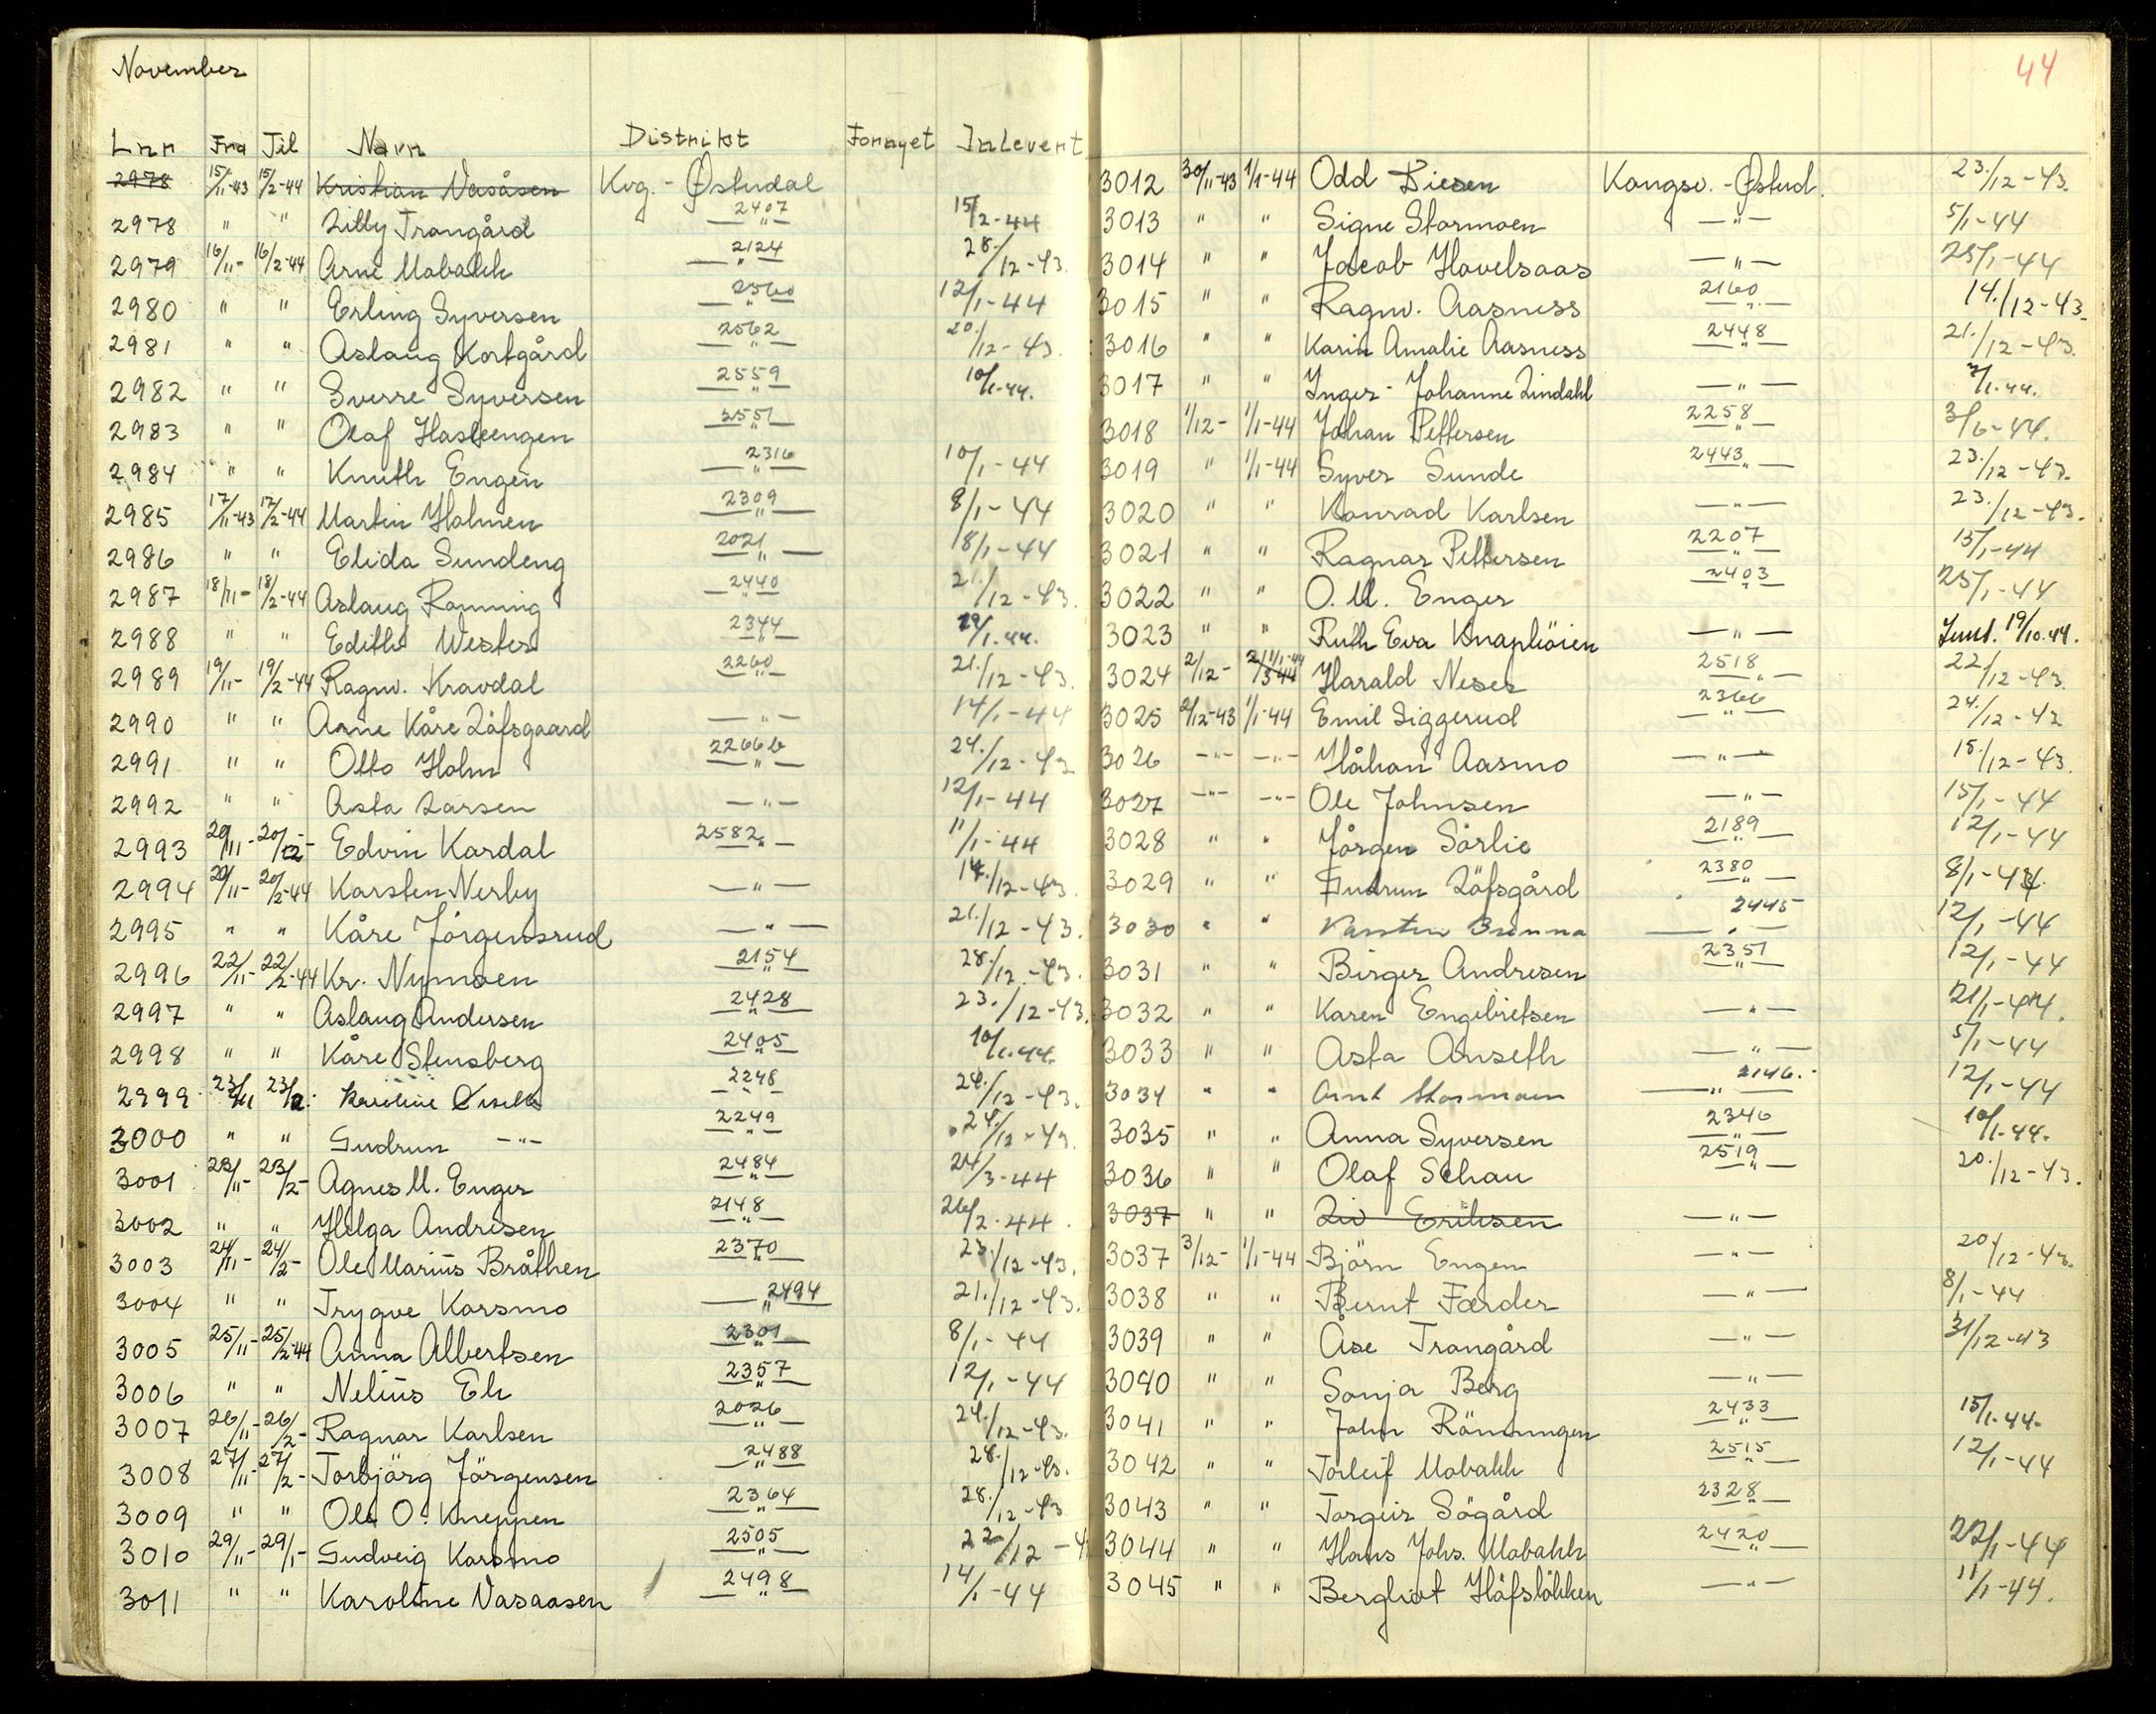 November
Lnr Fra Til Navn Distrikt Fornyet Inlevert
2978 15/11-43 15/2-44 Kristian Vasåsen Kvg. - Østerdal
2978 " " Lilly Trangård 2407 —"— 15/2-44
2979 16/11- 16/2-44 Arne Mobakk 2124 —"— 28./12-43.
2980 " " Erling Syversen 2560 —"— 12/1-44
2981 " " Aslaug Kortgård 2562 —"— 20./12-43.
2982 " " Sverre Syversen 2559 —"— 10/1-44.
2983 " " Olaf Hasleengen 2551 —"—
2984 " " Knuth Engen 2316 —"— 10/1-44
2985 17/11-43 17/2-44 Martin Holmen 2309 —"— 8/1-44
2986 " " Elida Sundeng 2021 —"— 18/1-44
2987 18/11- 18/2-44 Aslaug Rønning 2440 —"— 21./12-43.
2988 " " Edith Wester 2344 —"— 29/1.44.
2989 19/11- 19/2-44 Ragnv. Kravdal 2260 —"— 21./12-43.
2990 " " Arne Kåre Löfsgaard —"— 14/1-44
2991 " " Otto Holm 2266b —"— 24./12-43
2992 " " Asta Larsen —"— 12/1-44
2993 20/11- 20/12- Edvin Kardal 2582 —"— 11/1-44
2994 20/11- 20/2-44 Karsten Nerby —"— 14./12-43.
2995 " " Kåre Jörgensrud —"— 21./12-43.
2996 22/11- 22/2-44 Kr. Nymoen 2154 —"— 28./12-43.
2997 " " Aslaug Andersen 2428 —"— 23./12-43.
2998 " " Kåre Stensberg 2405 —"— 10/1.44.
2999 23/11 23/2. Karoline 2248 —"— 24./12-43.
3000 " " Gudrun —"— 2249 —"— 24./12-43.
3001 23/11- 23/2- Agnes M. Enger 2484 —"— 24/3-44
3002 " " Helga Andresen 2148 —"— 26/2-44.
3003 24/11- 24/2- Ole Marius Bråthen 2370 —"— 23/12-43.
3004 " " Trygve Karsmo 2494 —"— 21./12-43.
3005 25/11- 25/2-44 Anna Albertsen 2301 —"— 8/1-44
3006 " " Nelius Ek 2357 —"— 12/1-44
3007 26/11- 26/2- Ragnar Karlsen 2026 —"— 24./12-43.
3008 27/11- 27/2- Torbjörg Jörgensen 2488 —"— 28./12-43.
3009 " " Ole O. Kneppen 2364 —"— 28./12-43
3010 29/11- 29/1- Gudveig Karsmo 2505 —"— 22/12-4
3011 " " Karoline Vasaasen 2498 —"— 14/1-44
44
3012 30/11-43 1/1-44 Odd Diesen Kongsv. - Østerd. 23./12-43.
3013 " " Signe Stormoen —"— 5/1-44
3014 " " Jacob Hovelsaas —"— 25/1-44
3015 " " Ragnv. Aasness 2160 —"— 14./12-43.
3016 " " Karin Amalie Aasness 2448 —"— 21./12-43.
3017 " " Inger-Johanne Lindahl —"— 7/1.44.
3018 1/12- 1/1-44 Johan Pettersen 2258 —"— 3/6-44.
3019 " 1/1-44 Syver Sunde 2443 —"— 23./12-43.
3020 " " Konrad Karlsen —"— 23./12-43.
3021 " " Ragnar Pettersen 2207 —"— 15/1-44
3022 " " O. M. Enger 2403 —"— 25/1-44
3023 " " Ruth Eva Knapliöien —"— 19/10.44.
3024 2/12- 2/3-44 1/1-44 Harald Neser 2518 —"— 22/12-43.
3025 2/12-43 1/1-44 Emil Siggerud 2366 —"— 24./12-43
3026 —"— —"— Håkon Aasmo —"— 15./12-43.
3027 —"— —"— Ole Johnsen —"— 15/1-44
3028 " " Jörgen Sörlie 2189 —"— 12/1-44
3029 " " Gudrun Löfsgård 2380 —"— 8/1-44.
3030 " " Karsten Brenna 2445 —"— 12/1-44
3031 " " Birger Andresen 2351 —"— 12/1-44
3032 " " Karen Engebretsen —"— 21/1-44.
3033 " " Asta Anseth —"— 5/1-44
3034 " " Arnt Stormoen 2146. —"— 12/1-44
3035 " " Anna Syversen 2346 —"— 10/1-44.
3036 " " Olaf Schau 2519 —"— 20./12-43.
3037 " " Liv Eriksen —"—
3037 3/12- 1/1-44 Björn Engen —"— 20/12-43.
3038 " " Bernt Færder —"— 8/1-44
3039 " " Åse Trangård —"— 31/12-43
3040 " " Sonja Berg —"—
3041 " " John Rönningen 2433 —"— 15/1.44.
3042 " " Torleif Mobakk 2515 —"— 12/1-44
3043 " " Torgeir Sögård 2328 —"—
3044 " " Hans Johs. Mobakk 2420 —"— 22/1-44
3045 " " Bergliot Höfslökken —"— 11/1-44.